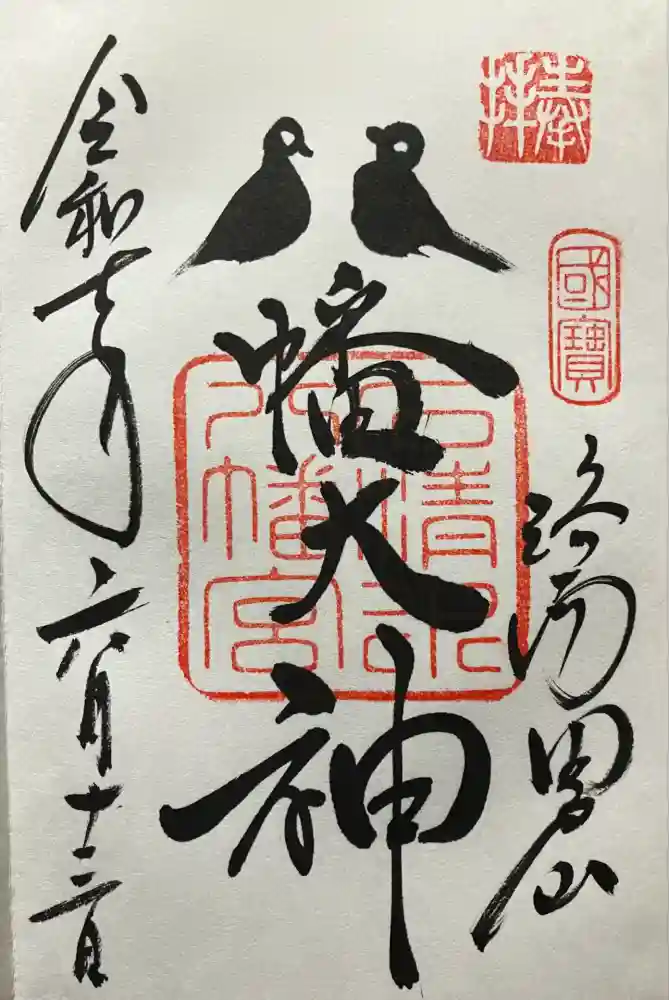 奉拝
國寶
洛南男山
八幡大神
石清水
八幡宮
令和七年六月十三日